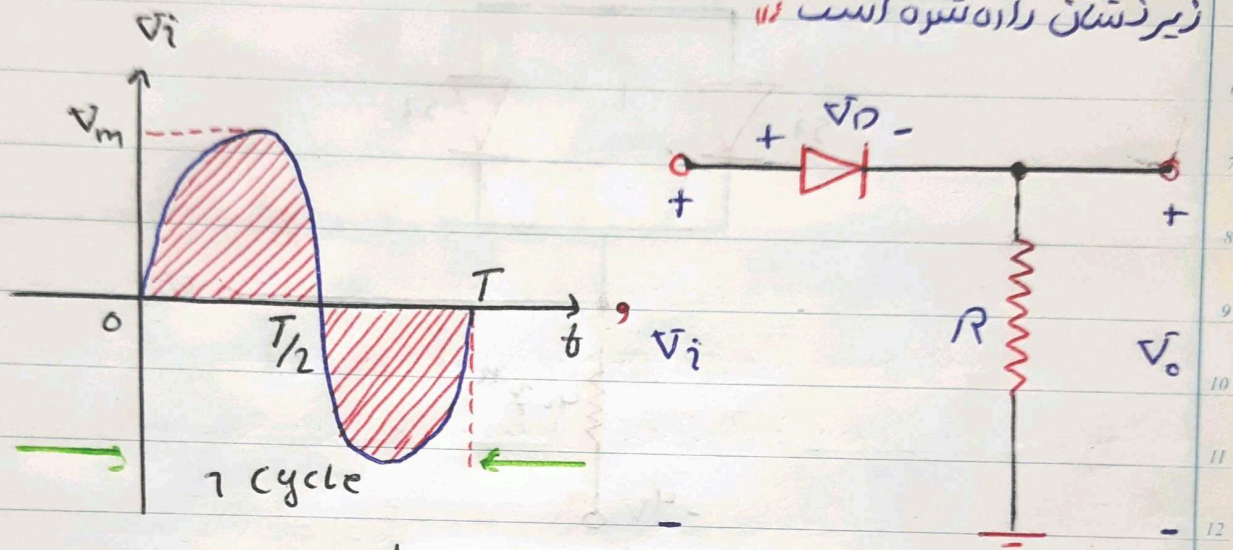 زیر نشان داده شده است
Vi
Vm
0
T/2
T
t
1 cycle
+ VD -
+
+
Vi
R
Vo
-
-
7
8
9
10
11
12